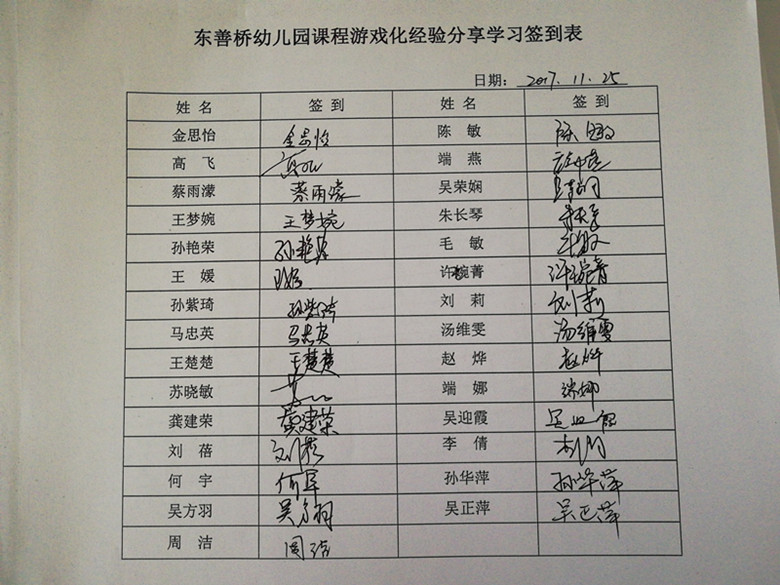 东善桥幼儿园课程游戏化经验分享学习签到表
日期：2017.11.25
姓名 签到 姓名 签到
金思怡 金思怡 陈敏 陈敏
高飞 高飞 端燕 端燕
蔡雨濛 蔡雨濛 吴荣娴
王梦婉 王梦婉 朱长琴 朱长琴
孙艳荣 孙艳荣 毛敏 毛敏
王媛 王媛 许婉菁 许婉菁
孙紫琦 孙紫琦 刘莉 刘莉
马忠英 马忠英 汤维雯 汤维雯
王楚楚 王楚楚 赵烨 赵烨
苏晓敏 端娜 端娜
龚建荣 龚建荣 吴迎霞 吴迎霞
刘蓓 刘蓓 李倩 李倩
何宇 何宇 孙华萍 孙华萍
吴方羽 吴方羽 吴正萍 吴正萍
周洁 周洁